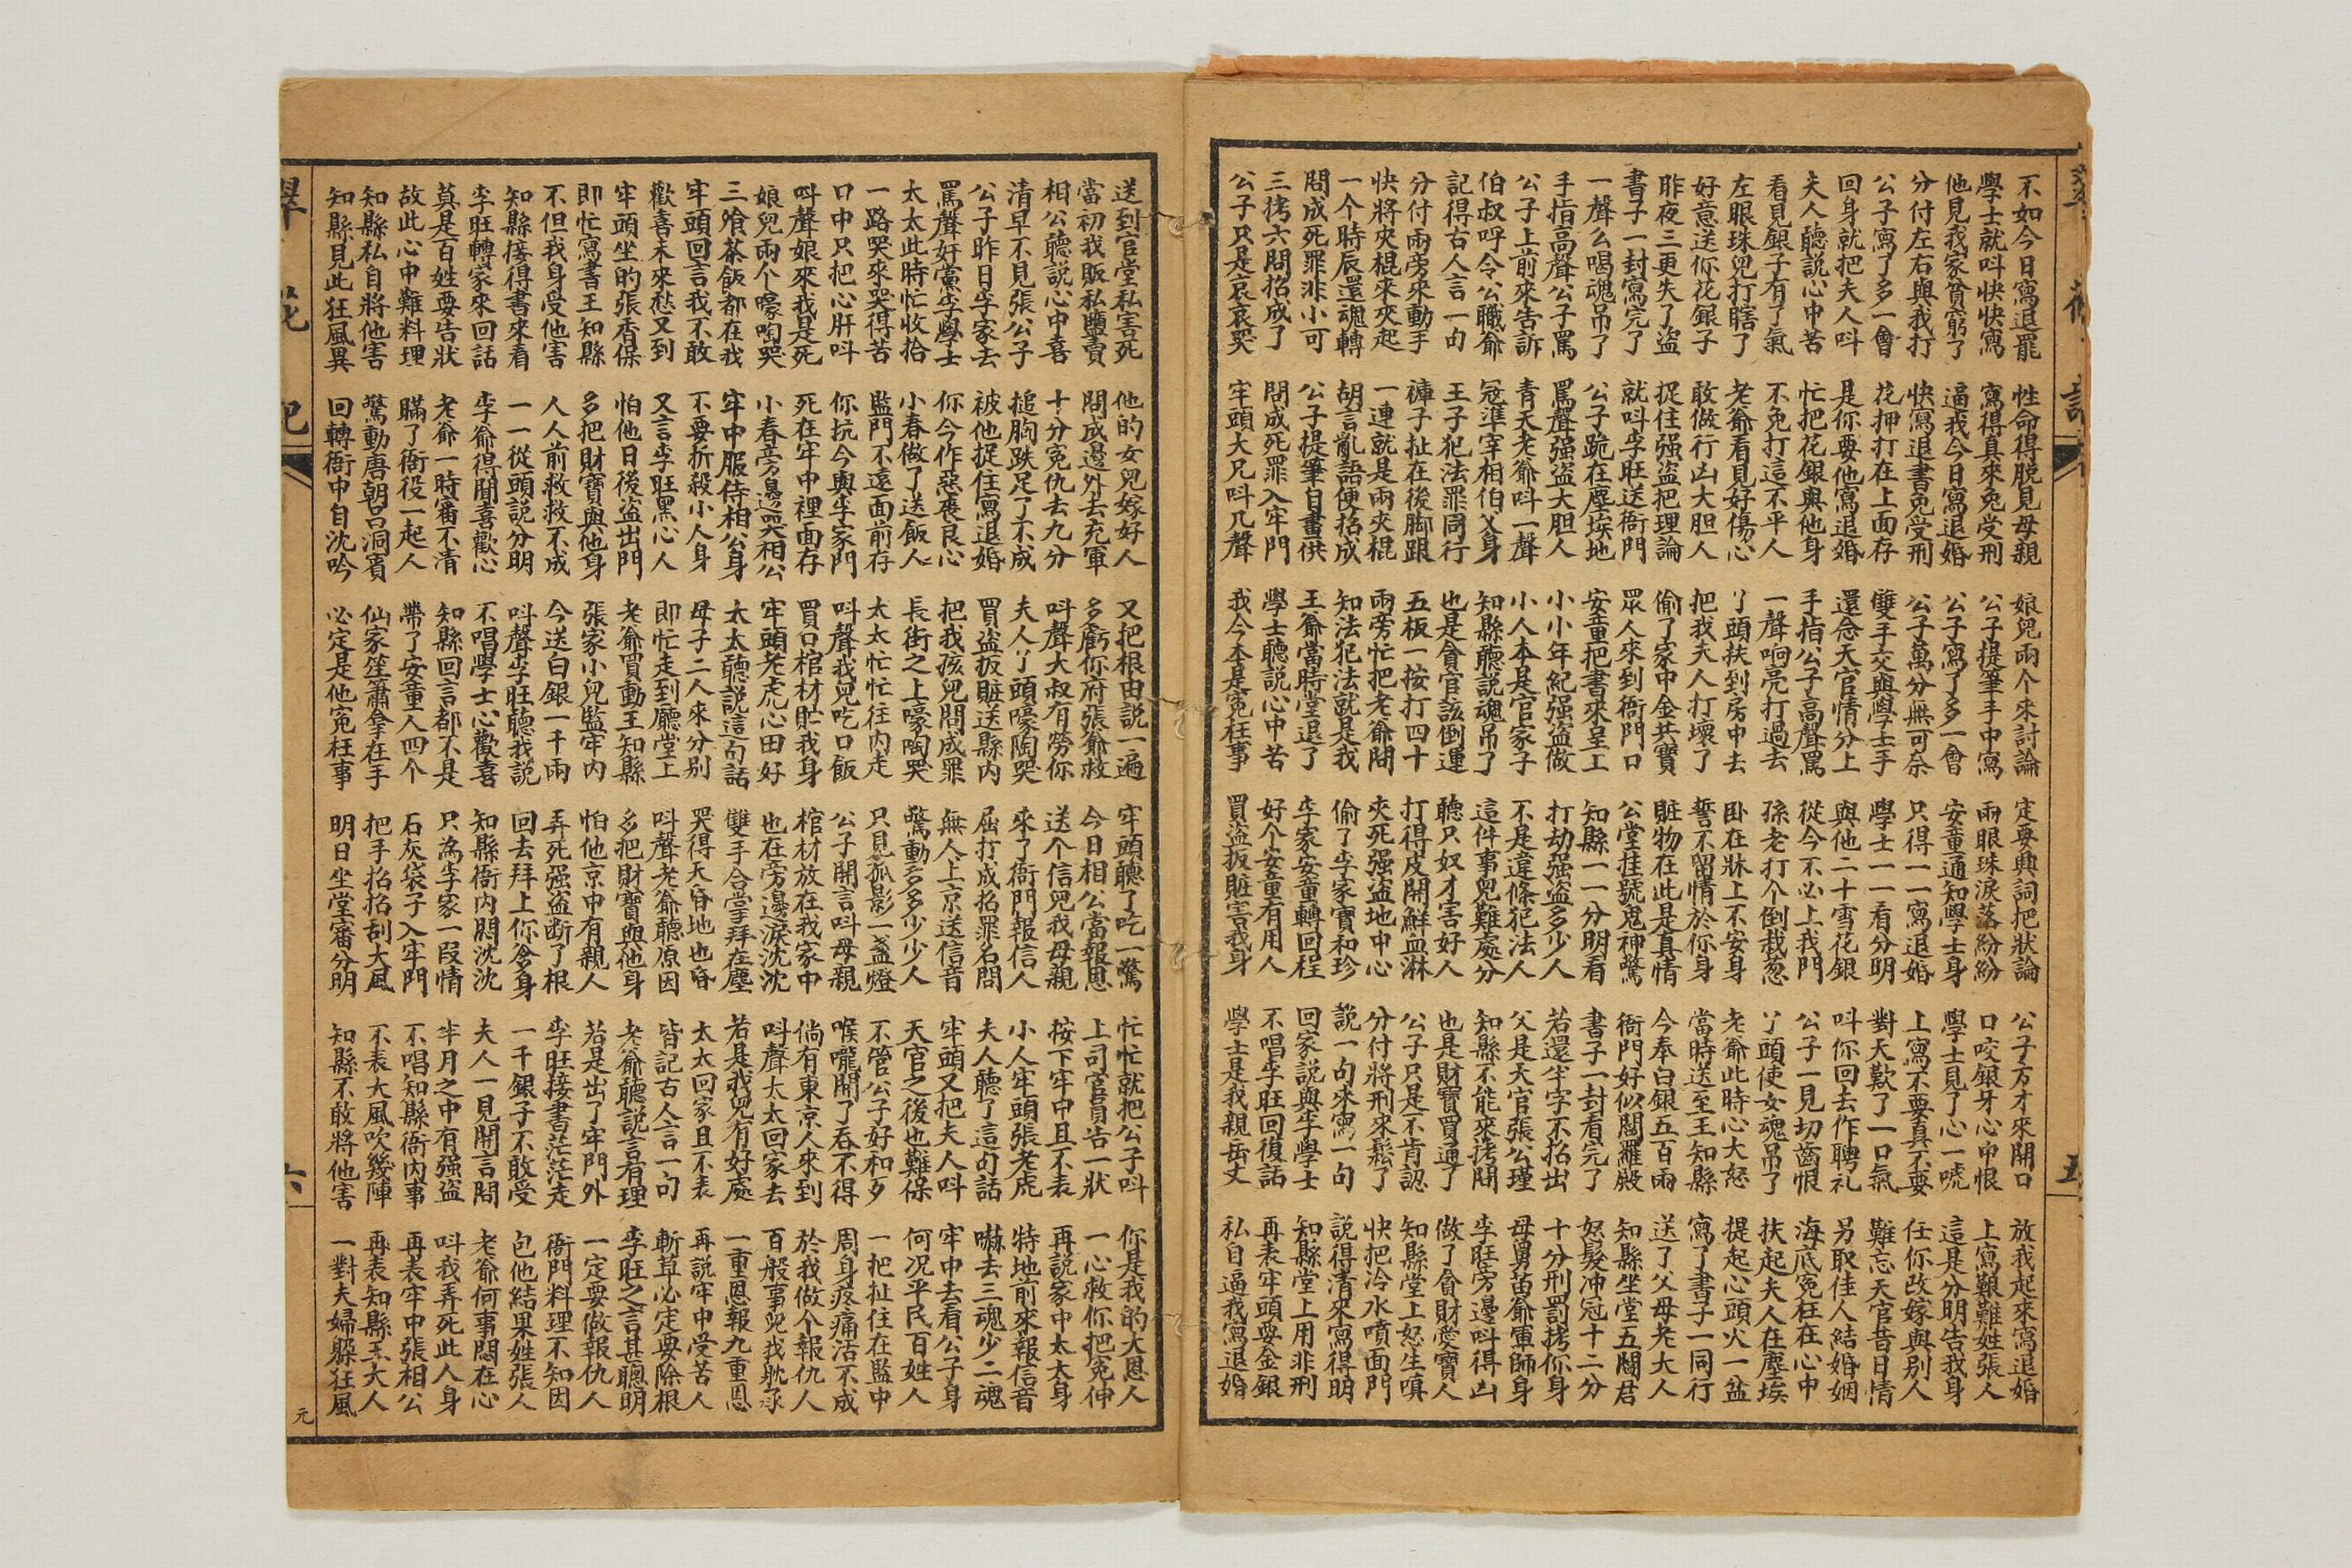 不如今日寫退罷 性命得脫見母親 娘兒兩个來討論 定要興詞把狀論 公子方才來開口 放我起來寫退婚
學士就呌快快寫 寫得真來免受刑 公子提筆手中寫 兩眼珠淚落紛紛 口咬銀牙心中恨 上寫艱難姓張人
他見我家貧窮了 逼我今日寫退婚 公子寫了多一會 安童通知學士身 學士見了心一唬 這是分明告我身
分付左右與我打 快寫退書免受刑 公子萬分無可奈 只得一一寫退婚 上寫不要真不要 任你改嫁與别人
公子寫了多一會 花押打在上面存 雙手交與學士手 學士一一看分明 對天歎了一口氣 難忘天官昔日情
回身就把夫人呌 是你要他寫退婚 還念天官情分上 與他二十雪花銀 呌你回去作聘礼 另取佳人結婚姻
夫人聽說心中苦 忙把花銀與他身 手指公子高聲罵 從今不必上我門 公子一見切齒恨 海底冤枉在心中
看見銀子有了氣 不免打這不平人 一聲响亮打過去 孫老打个倒栽葱 丫頭使女魂吊了 扶起夫人在塵埃
左眼珠兒打瞎了 老爺看見好傷心 丫頭扶到房中去 卧在牀上不安身 老爺此時心大怒 提起心頭火一盆
好意送你花銀子 敢做行凶大胆人 把我夫人打壞了 誓不留情於你身 當時送至王知縣 寫了書子一同行
昨夜三更失了盜 捉住强盜把理論 偷了家中金共寶 賍物在此是真情 今奉白銀五百兩 送了父母老大人
書子一封寫完了 就呌李旺送衙門 眾人來到衙門口 公堂挂號鬼神驚 衙門好似閻羅殿 知縣坐堂五閻君
一聲么喝魂吊了 公子跪在塵埃地 安童把書來呈上 知縣一一分明看 書子一封看完了 怒髮冲冠十二分
手指高聲公子罵 罵聲强盜大胆人 小小年紀强盜做 打劫强盜多少人 若還半字不招出 十分刑罰拷你身
公子上前來告訴 青天老爺呌一聲 小人本是官家子 不是違條犯法人 父是天官張公瑾 母舅苗爺軍師身
伯叔呼令公職爺 冠準宰相伯父身 知縣聽說魂吊了 這件事兒難處分 知縣不能來拷問 李旺旁邊呌得凶
記得古人言一句 王子犯法罪同行 也是貪官該倒運 聽只奴才害好人 也是財寶買通了 做了貪財愛寶人
分付兩旁來動手 褲子扯在後脚跟 五板一按打四十 打得皮開鮮血淋 公子只是不肯認 知縣堂上怒生嗔
快將夾棍來夾起 一連就是兩夾棍 兩旁忙把老爺問 夾死强盜地中心 分付將刑來鬆了 快把冷水噴面門
一个時辰還魂轉 胡言亂語便招成 知法犯法就是我 偷了李家寶和珍 說一句來寫一句 說得清來寫得明
問成死罪非小可 公子提筆自畫供 王爺當時堂退了 李家安童轉回程 回家說與李學士 知縣堂上用非刑
三拷六問招成了 問成死罪入牢門 學士聽說心中苦 好个安童有用人 不唱李旺回復話 再表牢頭要金銀
公子只是哀哀哭 牢頭大兄呌几聲 我今本是冤枉事 買盜扳賍害我身 學士是我親岳丈 私自逼我寫退婚
五
送到官堂私害死 他的女兒嫁好人 又把根由説一遍 牢頭聽了吃一驚 忙忙就把公子呌 你是我的大恩人
當初我販私鹽賣 問成邊外去充軍 多虧你府張爺救 今日相公當報恩 上司官員告一狀 一心救你把冤伸
相公聽説心中喜 十分冤仇去九分 呌聲大叔有勞你 送个信兒我母親 按下牢中且不表 再説家中太太身
清早不見張公子 搥胸跌足了不成 夫人丫頭嚎陶哭 來了衙門報信人 小人牢頭張老虎 特地前來報信音
公子昨日李家去 被他捉住寫退婚 買盜扳賍送縣内 屈打成招罪名問 夫人聽了這句話 嚇去三魂少二魂
罵聲奸黨李學士 你今作惡喪良心 把我孩兒問成罪 無人上京送信音 牢頭又把夫人呌 牢中去看公子身
太太此時忙收拾 小春做了送飯人 長街之上嚎啕哭 驚動多多少少人 天官之後也難保 何况平民百姓人
一路哭來哭得苦 監門不遠面前存 太太忙忙往内走 只見孤影一盞燈 不管公子好和歹 一把扯住在監中
口中只把心肝呌 你抗今與李家門 呌聲我兒吃口飯 公子開言呌母親 喉嚨開了吞不得 周身疼痛活不成
呌聲娘來我是死 死在牢中裡面存 買口棺材貯我身 棺材放在我家中 倘有東京人來到 於我做个報仇人
娘兒兩个嚎啕哭 小春旁邊哭相公 牢頭老虎心田好 也在旁邊淚沈沈 呌聲太太回家去 百般事兒我躭承
三飱茶飯都在我 牢中服侍相公身 太太聽説這句話 雙手合掌拜在塵 若是我兒有好處 一重恩報九重恩
牢頭回言我不敢 不要折殺小人身 母子二人來分别 哭得天昏地也昏 太太回家且不表 再説牢中受苦人
歡喜未來愁又到 又言李旺黑心人 即忙走到廳堂上 呌聲老爺聽原因 皆記古人言一句 斬草必定要除根
牢頭坐的張香保 怕他日後盜出門 老爺買動王知縣 多把財寶與他身 老爺聽説言有理 李旺之言甚聰明
即忙寫書王知縣 多把財寶與他身 張家小兒監牢内 怕他京中有親人 若是出了牢門外 一定要做報仇人
不但我身受他害 人人前救救不成 今送白銀一千兩 弄死强盜断了根 李旺接書茫茫走 衙門料理不知因
知縣接得書來看 一一從頭説分明 呌聲李旺聽我説 回去拜上你爺身 一千銀子不敢受 包他結果姓張人
李旺轉家來回話 李爺得聞喜歡心 不唱學士心歡喜 知縣衙内悶沈沈 夫人一見開言問 老爺何事悶在心
莫是百姓要告狀 老爺一時審不清 知縣回言都不是 只為李家一段情 半月之中有强盜 呌我弄死此人身
故此心中難料理 瞞了衙役一起人 帶了安童人四个 石灰袋子入牢門 不唱知縣衙内事 再表牢中張相公
知縣私自將他害 驚動唐朝吕洞賓 仙家笙簫拿在手 把手招招刮大風 不表大風吹幾陣 再表知縣王大人
知縣見此狂風異 回轉衙中自沈吟 必定是他冤枉事 明日坐堂審分明 知縣不敢將他害 一對夫婦躲狂風
花 記 六 元